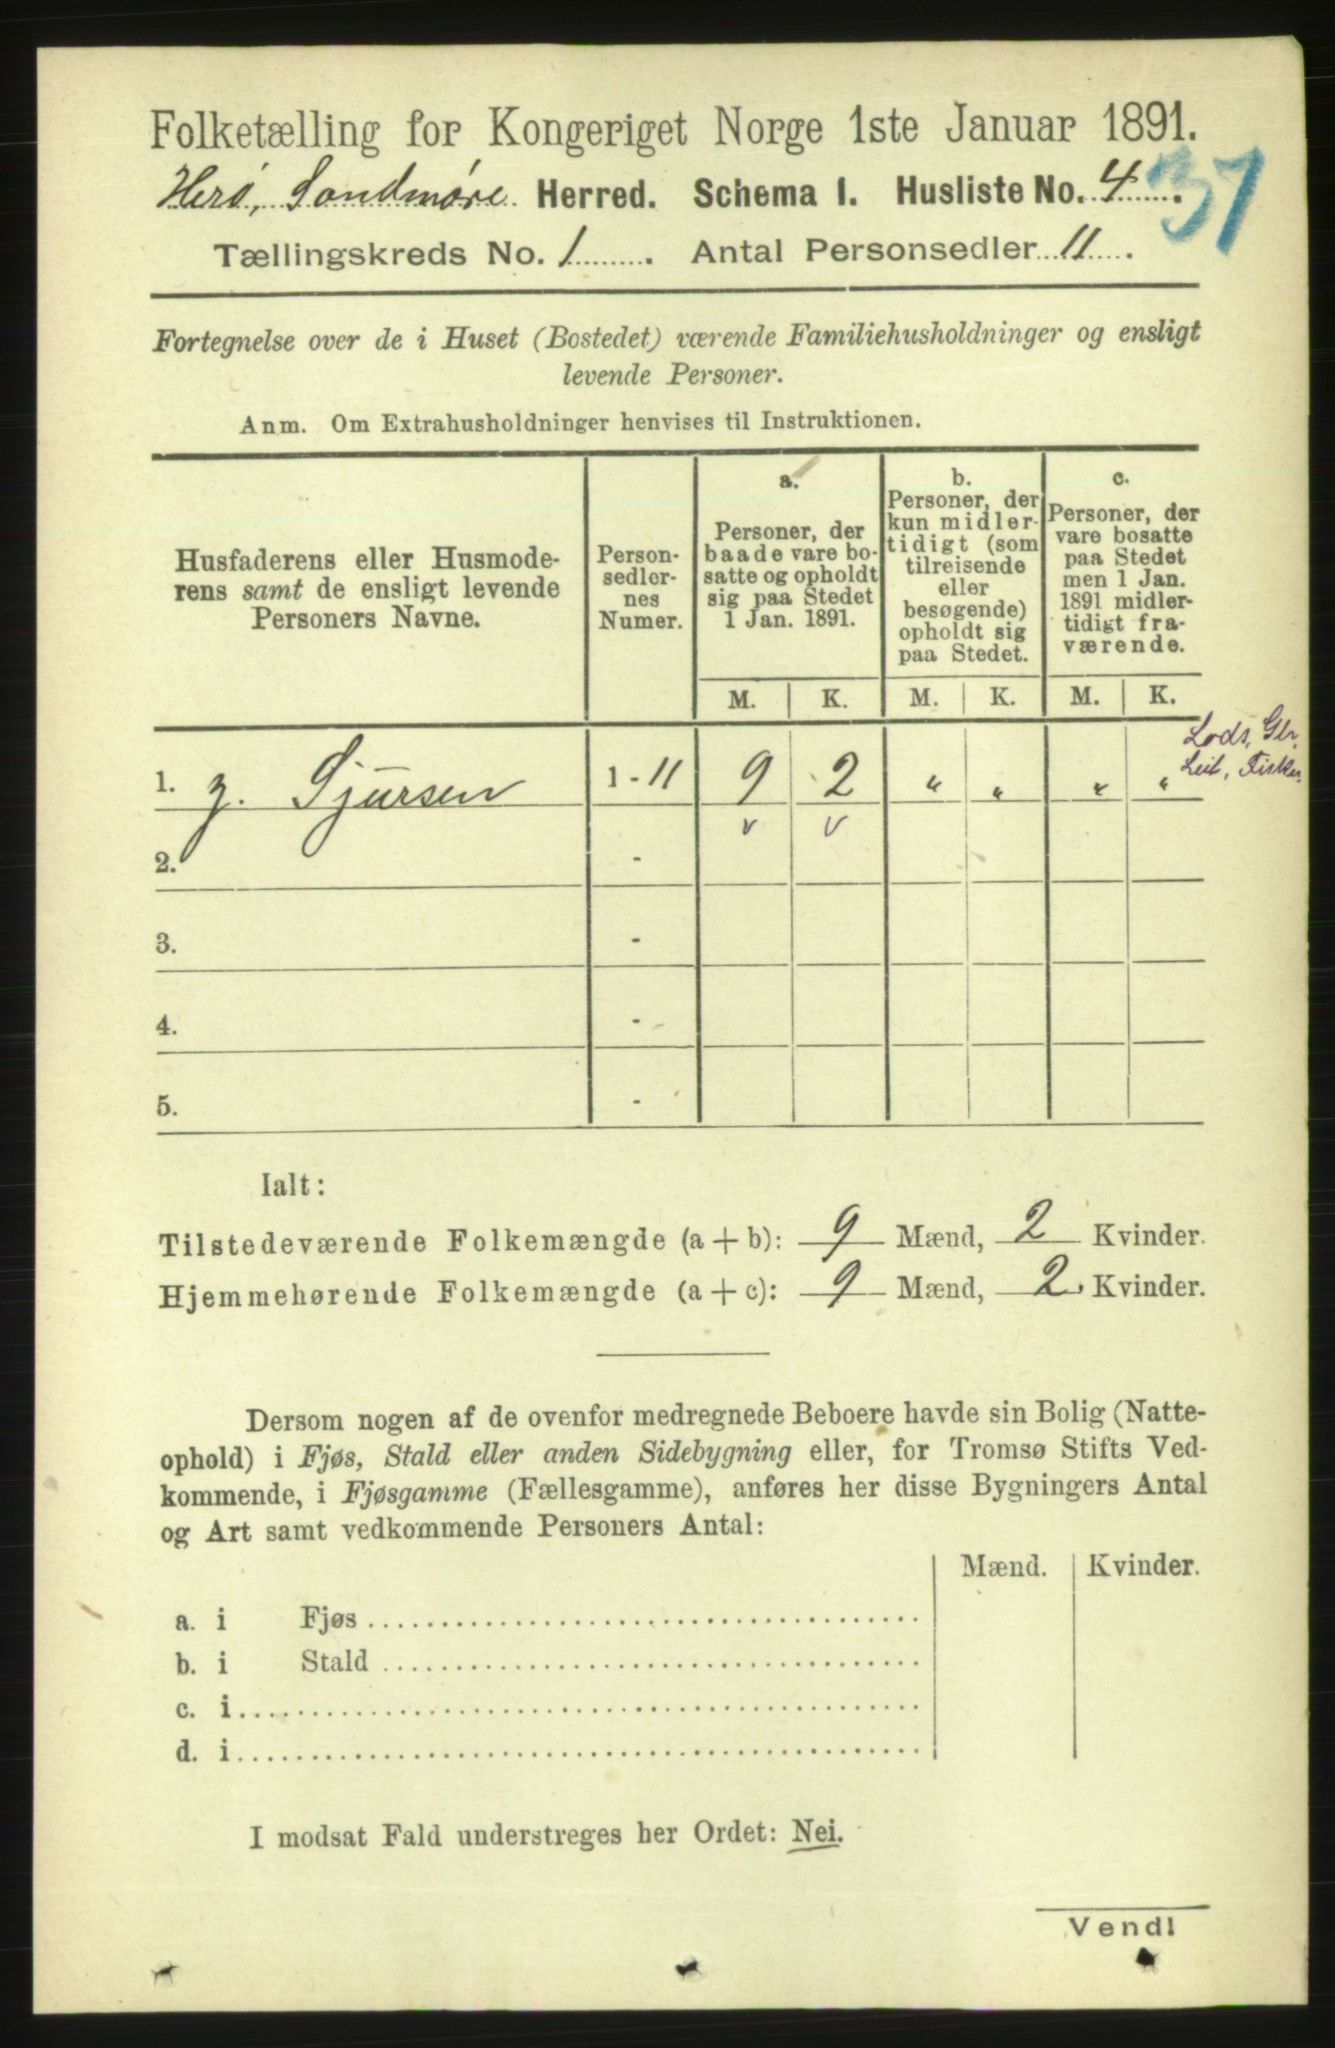 Folketælling for Kongeriget Norge 1ste Januar 1891.
Herö, Søndmøre Herred. Schema I. Husliste No. 4.
37
Tællingskreds No. 1. Antal Personsedler 11.
Fortegnelse over de i Huset (Bostedet) værende Familiehusholdninger og ensligt
levende Personer.
Anm. Om Extrahusholdninger henvises til Instruktionen.
Husfaderens eller Husmode-
rens samt de ensligt levende
Personers Navne.
Person-
sedler-
nes
Numer.
a.
Personer, der
baade vare bo-
satte og opholdt
sig paa Stedet
1 Jan. 1891.
b.
Personer, der
kun midler-
tidigt (som
tilreisende
eller
besøgende)
opholdt sig
paa Stedet.
c.
Personer, der
vare bosatte
paa Stedet
men 1 Jan.
1891 midler-
tidigt fra-
værende.
M. K. M. K. M. K.
Lods,
Fisker
1. Sjursen 1 - 11 9 2 " " " "
v v
2. -
3. -
4. -
5. -
Ialt:
Tilstedeværende Folkemængde (a + b): 9 Mænd, 2 Kvinder.
Hjemmehørende Folkemængde (a + c): 9 Mænd, 2 Kvinder.
Dersom nogen af de ovenfor medregnede Beboere havde sin Bolig (Natte-
ophold) i Fjøs, Stald eller anden Sidebygning eller, for Tromsø Stifts Ved-
kommende, i Fjøsgamme (Fællesgamme), anføres her disse Bygningers Antal
og Art samt vedkommende Personers Antal:
Mænd. Kvinder.
a. i Fjøs
b. i Stald
c. i
d. i
I modsat Fald understreges her Ordet: Nei.
Vend!